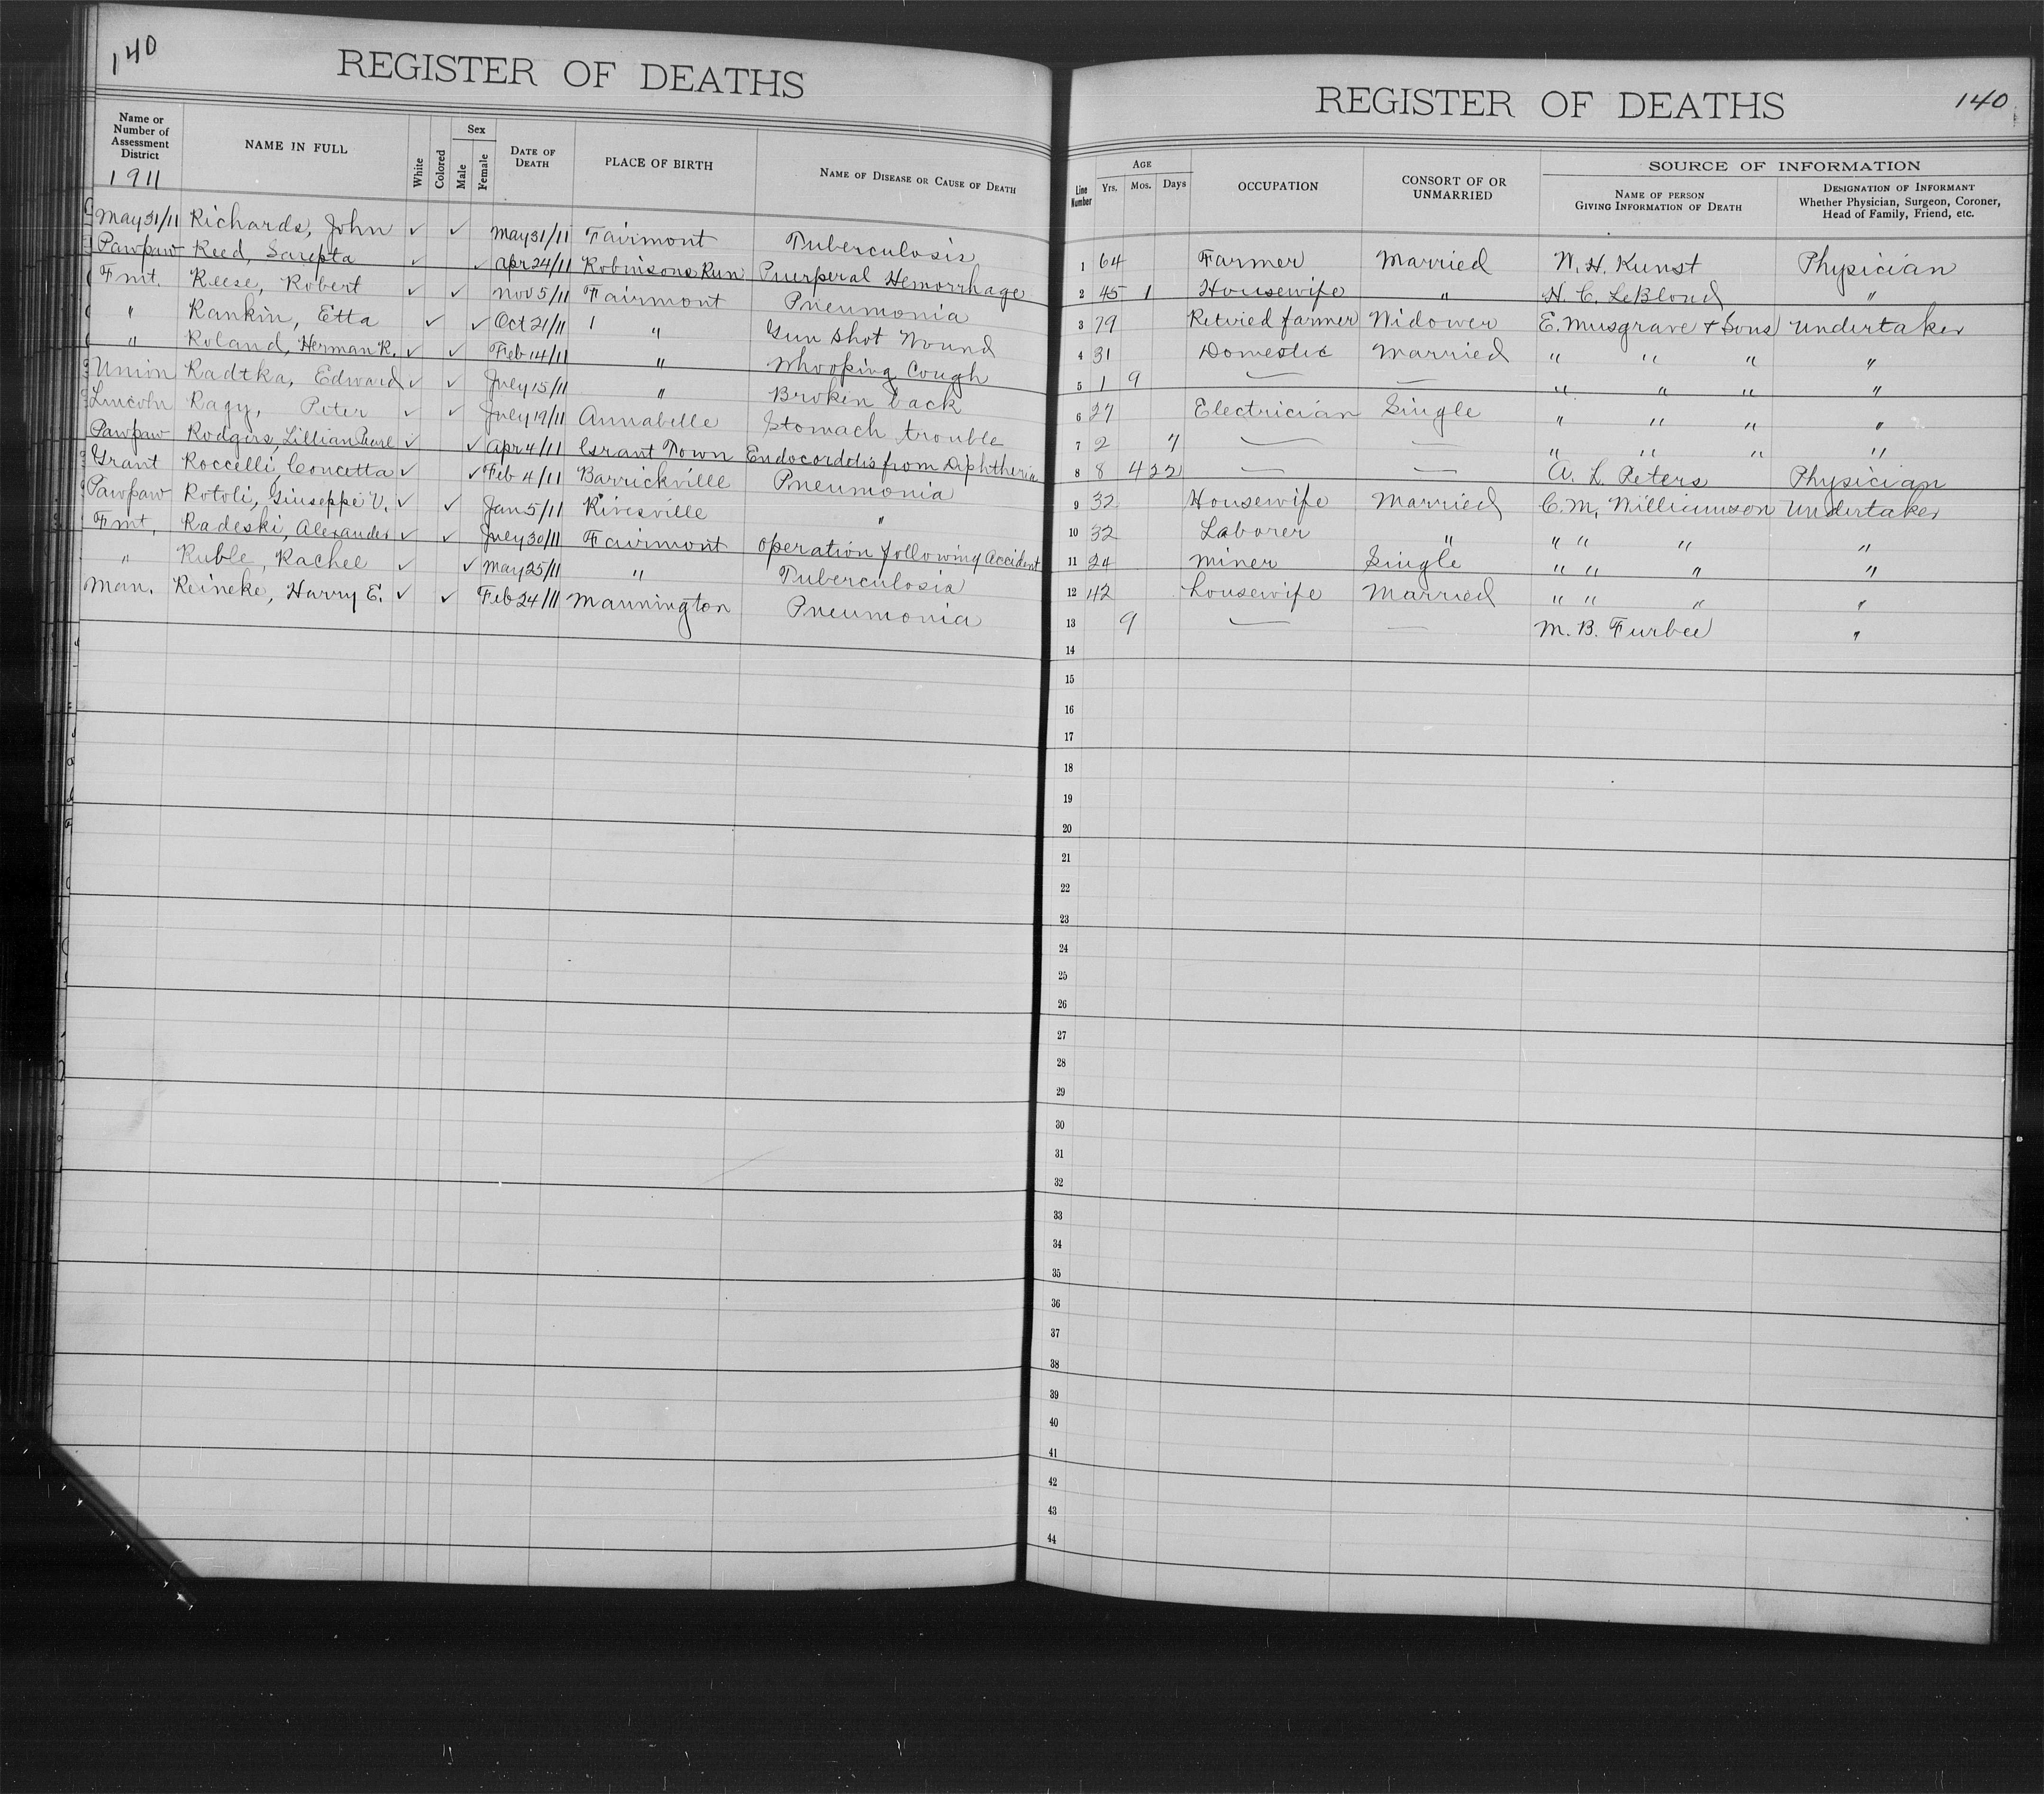 140
REGISTER OF DEATHS
Name or Number of Assessment District
NAME IN FULL
White
Colored
Sex
Male
Female
DATE OF DEATH
PLACE OF BIRTH
NAME OF DISEASE OR CAUSE OF DEATH
1911
May 31/11 Richards, John ✓ ✓ May 31/11 Fairmont Tuberculosis
Pawpaw Reed, Sarepta ✓ ✓ Apr 24/11 Robinsons Run Puerperal Hemorrhage
Fmt. Reese, Robert ✓ ✓ Nov 5/11 Fairmont Pneumonia
" Rankin, Etta ✓ ✓ Oct 21/11 " Gun Shot Wound
" Roland, Herman R. ✓ ✓ Feb 14/11 " Whooping Cough
Union Radtka, Edward ✓ ✓ July 15/11 " Broken back
Lincoln Ragy, Peter ✓ ✓ July 19/11 Annabelle Stomach trouble
Pawpaw Rodgers, Lillian Pearl ✓ ✓ Apr 4/11 Grant Town Endocorditis from Diphtheria
Grant Roccelli, Concetta ✓ ✓ Feb 4/11 Barrickville Pneumonia
Pawpaw Rotoli, Giuseppi V. ✓ ✓ Jan 5/11 Rivesville "
Fmt, Radeski, Alexander ✓ ✓ July 30/11 Fairmont operation following Accident
" Ruble, Rachel ✓ ✓ May 25/11 " Tuberculosis
Man. Reineke, Harry E. ✓ ✓ Feb 24/11 Mannington Pneumonia
REGISTER OF DEATHS
140
Line Number
AGE
Yrs. Mos. Days
OCCUPATION
CONSORT OF OR UNMARRIED
SOURCE OF INFORMATION
NAME OF PERSON GIVING INFORMATION OF DEATH
DESIGNATION OF INFORMANT
Whether Physician, Surgeon, Coroner, Head of Family, Friend, etc.
1 64 Farmer Married W. H. Kunst Physician
2 45 1 Housewife " H. C. LeBlond "
3 79 Retvied farmer Widower E. Musgrave & Sons Undertaker
4 31 Domestic Married " " " "
5 1 9 — — " " " "
6 27 Electrician Single " " " "
7 2 7 — — " " " "
8 8 4 22 — — A. L. Peters Physician
9 32 Housewife Married C. M. Williamson Undertaker
10 32 Laborer " " " " "
11 24 Miner Single " " " "
12 42 Housewife Married " " " "
13 9 — — M. B. Furbee "
14
15
16
17
18
19
20
21
22
23
24
25
26
27
28
29
30
31
32
33
34
35
36
37
38
39
40
41
42
43
44